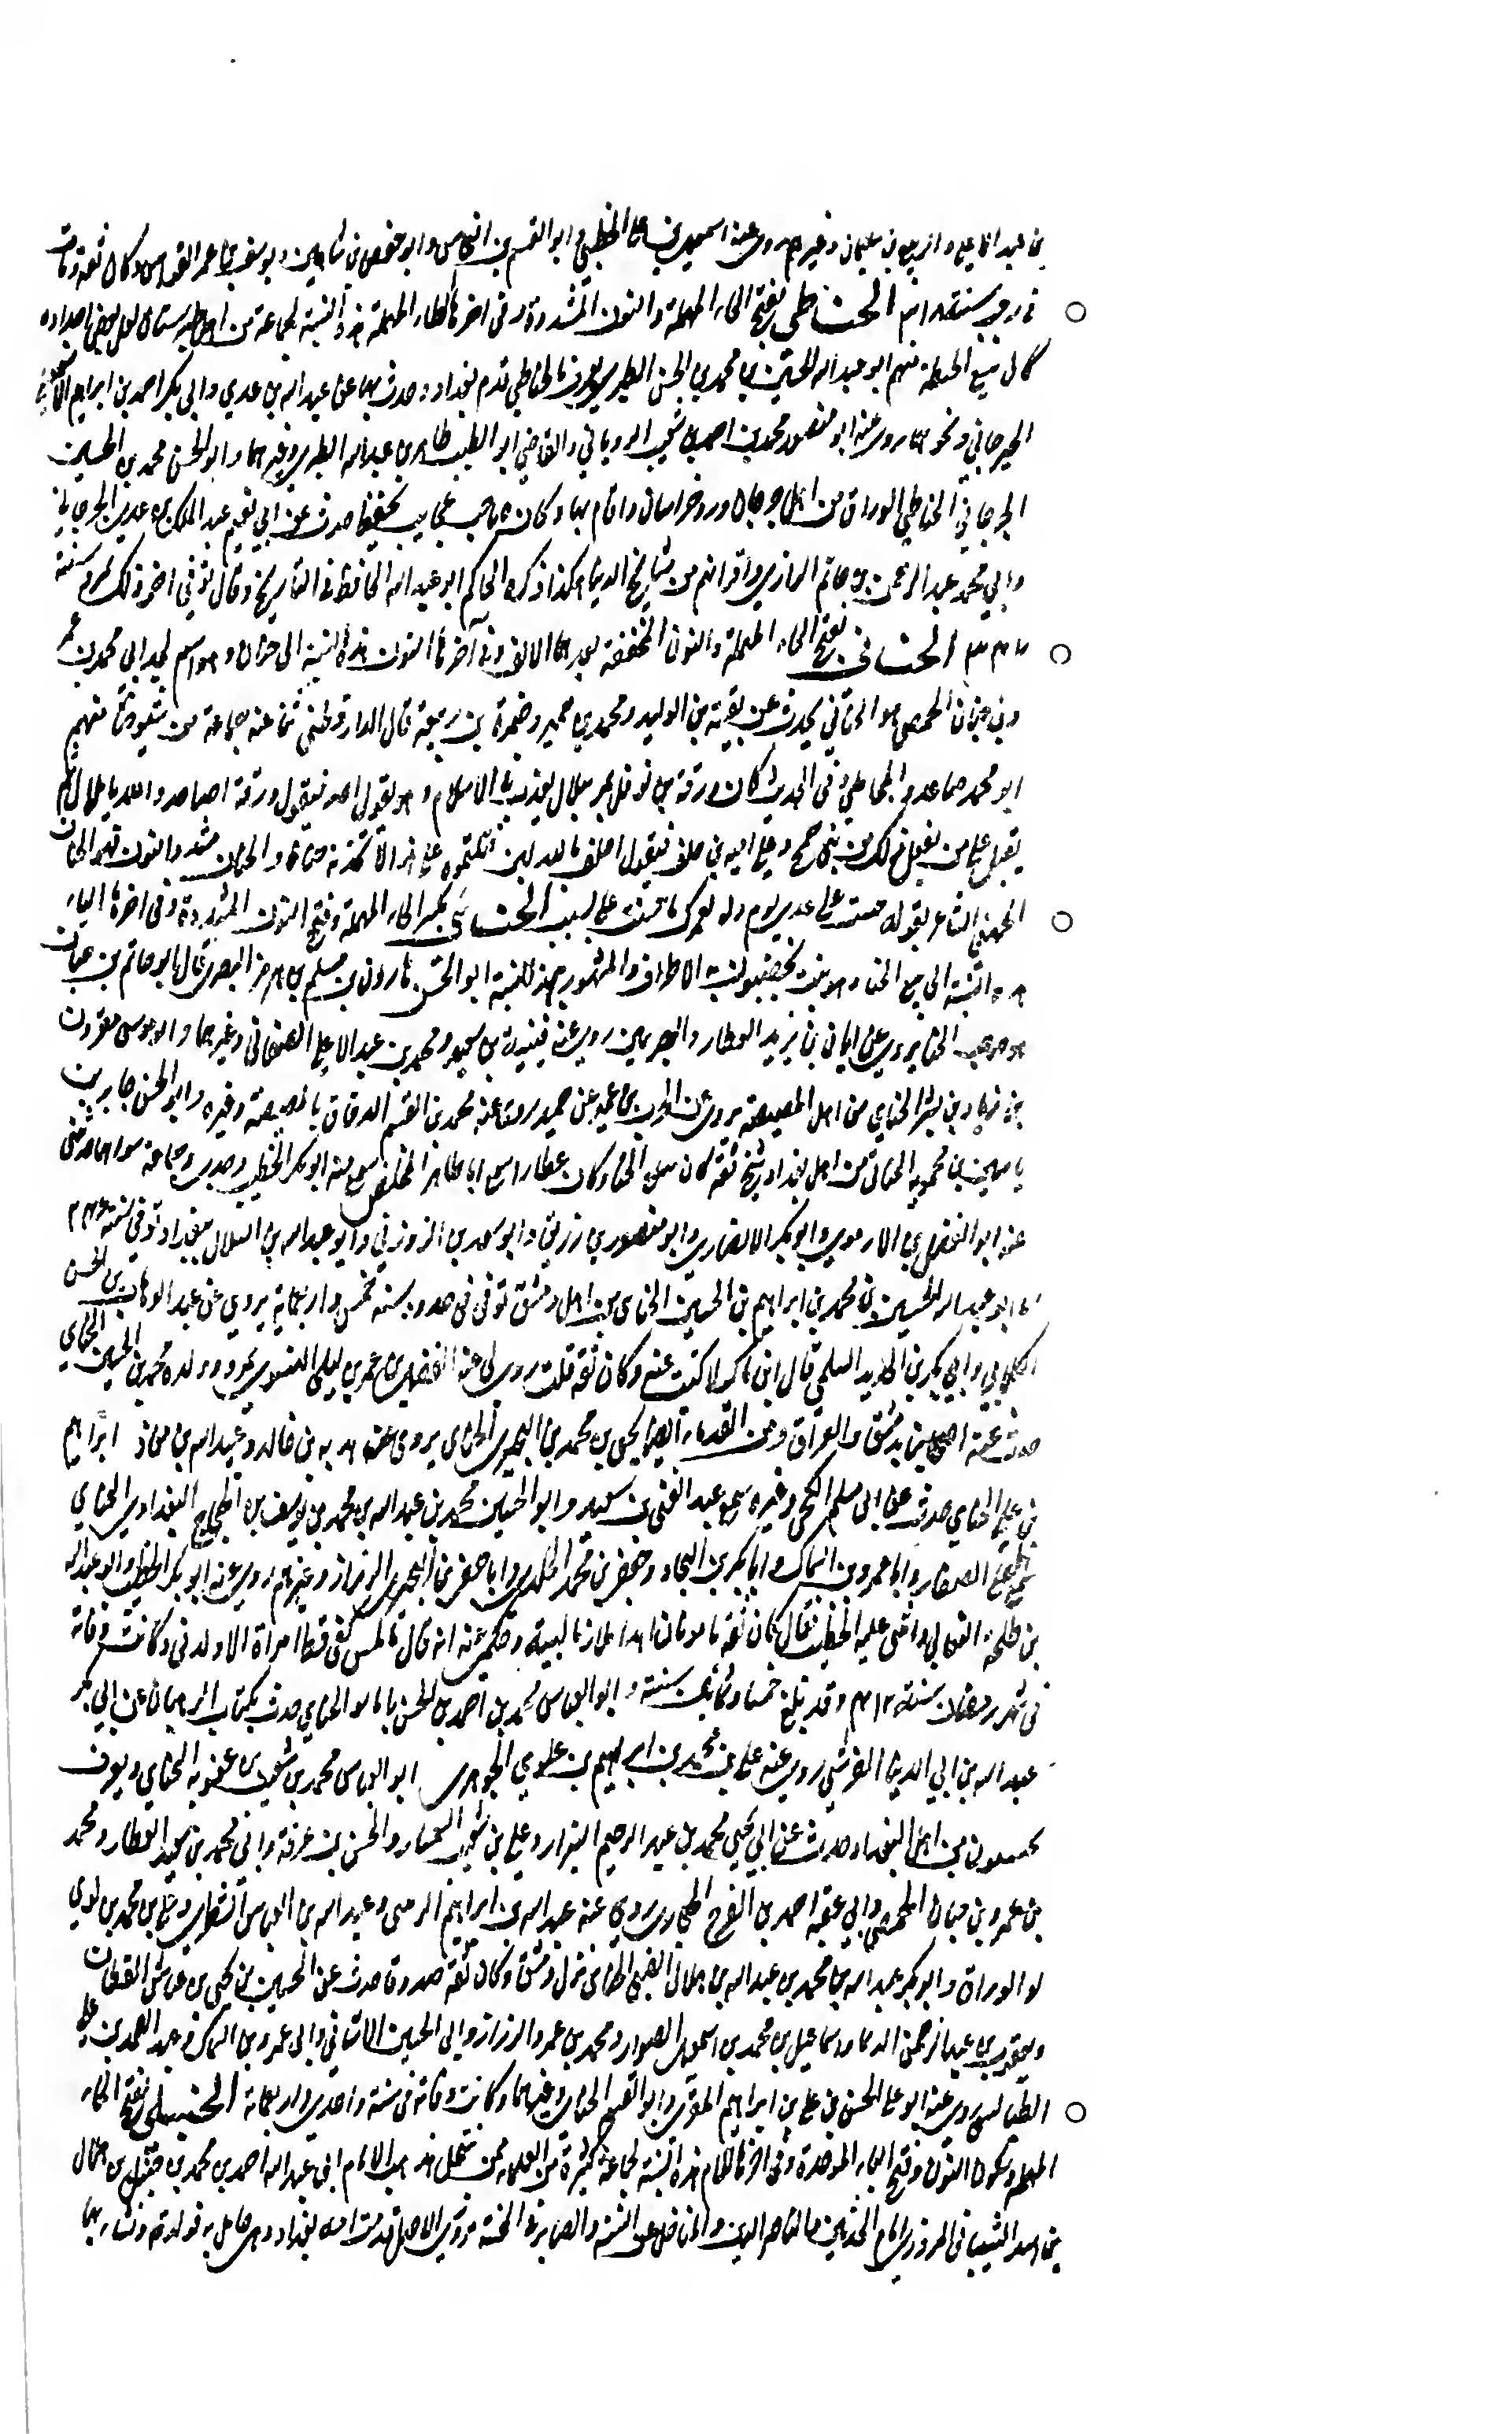 بن عبد الاعلى والربيع بن سليمان وغيرهم روى عنه اسمعيل بن على الخطبي وابو القسم بن النحاس وابو حفص بن شاهين ويوسف بن عمر القواس وكان ثقة ومات
في رجب سنة الحناطي بفتح الحاء المهملة والنون المشددة وفي اخرها الطاء المهملة هذه النسبة لجماعة من اهل طبرستان لعل بعض اجداده
كان يبيع الحنطة منهم ابو عبد الله الحسين بن محمد بن الحسن الطبري يعرف بالحناطي قدم بغداد وحدث بها عن عبد الله بن عدي وابي بكر احمد بن ابراهيم الاسمعيلي
الجرجاني ونحوهما روى عنه ابو منصور محمد بن احمد بن شعيب الروياني والقاضي ابو الطيب طاهر بن عبد الله الطبري وغيرهما وابو الحسن محمد بن الحسين
الجرجاني الحناطي الوراق من اهل جرجان ورد خراسان واقام بها وكان صاحب عجايب يحفظ حدث عن ابي نعيم عبد الملك بن عدي الجرجاني
وابي محمد عبد الرحمن بن ابي حاتم الرازي واقرانهم من مشايخ الدنيا هكذا ذكره الحاكم ابو عبد الله الحافظ في التاريخ وقال توفي اخر ذلك بمرو سنة
الحناني بفتح الحاء المهملة والنون المخففة بعدها الالف وفي آخرها النون هذه النسبة الى حنان وهو اسم لجد ابي محمد بن عمر
وبن حنان الحمصي هو الحناني يحدث عن بقية بن الوليد ومحمد بن حمير وضمرة بن ربيعة قال الدارقطني ثنا عنه جماعة من شيوخنا منهم
ابو محمد صاعد والمحاملي وفي الحديث كان ورقة بن نوفل يمر ببلال يعذب على الاسلام وهو يقول احد فيقول ورقة احد احد والله يا بلال ثم
يقبل على من يفعل ذلك من بني جمح وعلى امية بن خلف فيقول احلف بالله لئن قتلتموه على هذا لاتخذنه حنانا والحنان مشدد النون قيس الحنان
الجهني الشاعر بقوله على عدي يوم ولو لعمرك ما حننت على لبيب الحنائي بكسر الحاء المهملة وفتح النون المشددة وفي اخرها الياء
هذه النسبة الى بيع الحناء وهو نبت يخضبون به الاطراف والمشهور بهذه النسبة ابو الحسن هارون بن مسلم بن هرمز البصري قال ابو حاتم بن حبان
هو صاحب الحنا يروي عن ابان بن يزيد العطار والبصريين روى عنه قتيبة بن سعيد ومحمد بن عبد الاعلى الصنعاني وغيرهما وابو موسى هرون
بن زياد بن بشر الحنايي من اهل المصيصة يروي عن الحرث بن عمير عن حميد روى عنه محمد بن القسم الدقاق بالمصيصة وغيره وابو الحسن جابر بن
ياسين بن محمويه الحنائي من اهل بغداد شيخ ثقة كان يبيع الحنا وكان عطارا سمع ابا طاهر المخلص سمع منه ابو بكر الخطيب وجماعة سواهما حدثني
عنه ابو الفضل بن الارموي وابو بكر الانصاري وابو منصور بن زريق وابو سعد بن الزوزني وابو عبد الله بن السلال ببغداد توفي سنة
وابو عبد الله الحسين بن محمد بن ابراهيم بن الحسين الحنائي من اهل دمشق توفي في حدود سنة خمس واربعماية يروي عن عبد الوهاب بن الحسن
الكلابي وابي بكر بن الحديد السلمي قال ابن ماكولا كتبت عنه وكان ثقة قلت روى لي عنه الفضل بن عمر بن ليلى النسوي بمرو وولده محمد بن الحسين الحنائي
حدث عنه اصحابنا بدمشق والعراق ومن القدماء ايضا يحيى بن محمد بن البختري الحنائي يروي عن هدبة بن خالد وعبيد الله بن معاذ ابراهيم
بن علي الحنائي حدث عن ابي مسلم الكجي وغيره سمع عبد الغني بن سعيد وابو الحسين محمد بن عبد الله بن محمد بن يوسف بن الحجاج البغدادي الحنائي
سمع الصفار وابا عمرو بن السماك وابا بكر بن النجاد وجعفر بن محمد الخلدي وابا جعفر بن البختري الرزاز وغيرهم روى عنه ابو بكر الخطيب وابو عبد الله
بن طلحة النعالي واثنى عليه الخطيب فقال كان ثقة مامونا زاهدا ملازما لبيته وحكي عنه انه قال ما لمس كفي قط امراة الا ولدتني وكانت وفاته
في شهر رمضان سنة وقد بلغ خمسا وثمانين سنة وابو العباس محمد بن احمد بن الحسن بن بابويه الحنائي حدث بكتاب الرهبان عن ابي بكر
عبد الله بن ابي الدنيا القرشي روى عنه علي بن محمد بن ابراهيم بن علوي الجوهري ابو العباس محمد بن سفيان بن عفويه الحنائي ويعرف
من اهل بغداد حدث عن ابي يحيى محمد بن عبد الرحيم البزاز وعلي بن شعيب السمسار والحسن بن عرفة وابي محمد بن سعيد العطار ومحمد
بن عمرو بن حنان الحمصي وابي عتبة احمد بن الفرج الحجازي روى عنه عبد الله بن ابراهيم الزينبي وعبد الله بن العباس الشطوي وعلي بن محمد بن لولو
لو الوراق وابو بكر عبد الله بن محمد بن عبد الله بن هلال الضبي الحنائي نزل دمشق وكان ثقة صدوقا حدث عن الحسين بن يحيى بن عياش القطان
ويعقوب بن عبد الرحمن الدعا واسماعيل بن محمد بن اسمعيل الصفار ومحمد بن عمرو الرزاز وابي الحسين الاشناني وابي عمرو بن السماك وعبد الصمد بن علي
الطستي روى عنه ابو علي الحسن بن علي بن ابراهيم المقري وابو القسم الحنائي وغيرهما وكانت وفاته في سنة واحدى واربعماية الحنبلي بفتح الحاء
المهملة وسكون النون وفتح الباء الموحدة وفي اخرها اللام هذه النسبة لجماعة كثيرة من العلماء ممن ينتحل مذهب الامام ابي عبد الله احمد بن محمد بن حنبل بن هلال
بن اسد الشيباني المروزي امام المحدثين والناصر للدين والمناضل عن السنة والصابر في المحنة مروزي الاصل قدمت امه بغداد وهي حامل به فولدته ونشا بها